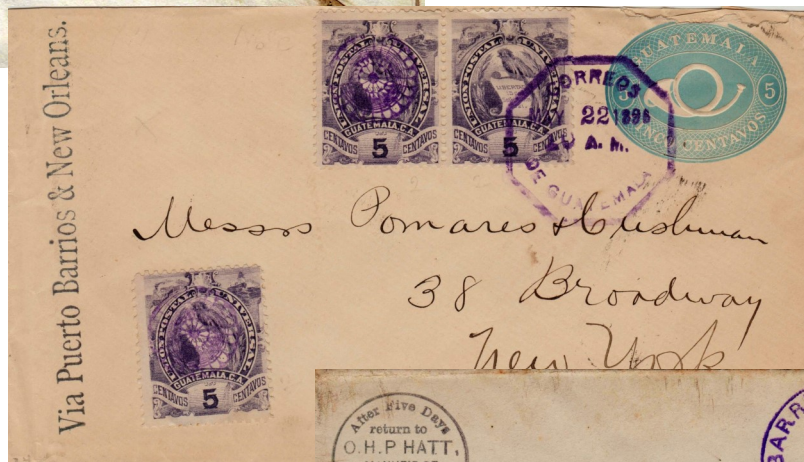 Via Puerto Barrios & New Orleans.
UNION POSTAL UNIVERSAL
GUATEMALA, C.A.
CENTAVOS 5 CENTAVOS
UNION POSTAL UNIVERSAL
GUATEMALA, C.A.
CENTAVOS 5 CENTAVOS
CORREOS
22 1896
A. M.
DE GUATEMALA
GUATEMALA
5 5
CINCO CENTAVOS
Messrs Pomares & Cushman
38 Broadway
New York
UNION POSTAL UNIVERSAL
GUATEMALA, C.A.
CENTAVOS 5 CENTAVOS
After Five Days
return to
O.H.P HATT,
BARR